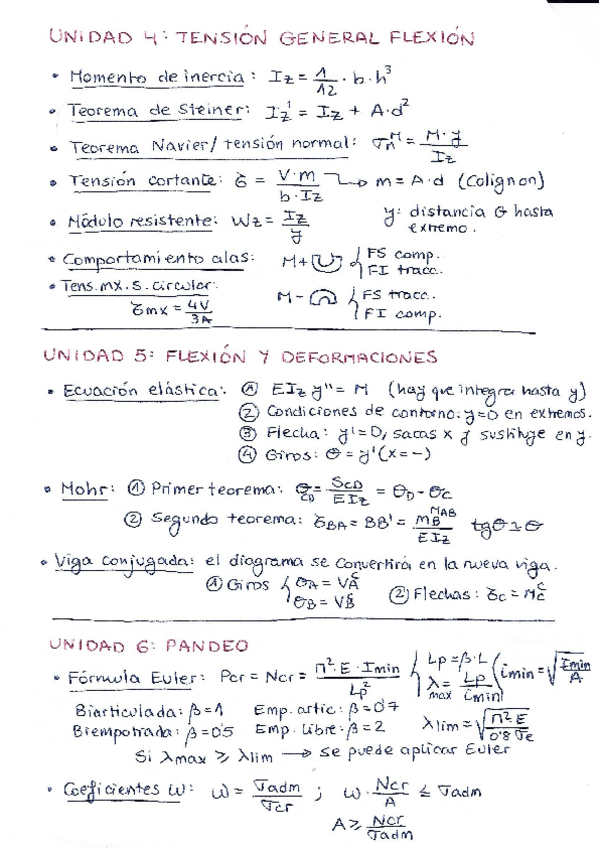 UNIDAD 4: TENSIÓN GENERAL FLEXIÓN
• Momento de inercia: Iz = 1/12 · b · h³
• Teorema de Steiner: Iz¹ = Iz + A·d²
• Teorema Navier/tensión normal: σn^M = M·y / Iz
• Tensión cortante: τ = V·m / b·Iz → m = A·d (Colignon)
• Módulo resistente: Wz = Iz / y
y: distancia G hasta
extremo.
• Comportamiento alas: M+ { FS comp.
FI tracc.
M- { FS tracc.
FI comp.
• Tens. mx. s. circular:
τmx = 4V / 3A
UNIDAD 5: FLEXIÓN Y DEFORMACIONES
• Ecuación elástica: ① EIz y'' = M (hay que integrar hasta y)
② Condiciones de contorno: y=0 en extremos.
③ Flecha: y'=0, sacas x y sustituye en y.
④ Giros: θ = y'(x=-)
• Mohr: ① Primer teorema: θCD = SCD / EIz = θD - θC
② Segundo teorema: δBA = BB' = mB^MAB / EIz tgθ≃θ
• Viga conjugada: el diagrama se convertirá en la nueva viga.
① Giros { θA = VA^c
θB = VB^c
② Flechas: δc = Mc^c
UNIDAD 6: PANDEO
• Fórmula Euler: Pcr = Ncr = π²·E·Imin / Lp² { Lp = β·L
λmax = Lp / imin (imin = √(Imin / A)
Biarticulada: β=1 Emp. artic: β=0'7
Biempotrada: β=0'5 Emp. Libre: β=2 λlim = √(π²E / 0'8 σe)
Si λmax ⩾ λlim → se puede aplicar Euler
• Coeficientes W: ω = σadm / σcr ; ω · Ncr / A ≤ σadm
A ≥ Ncr / σadm